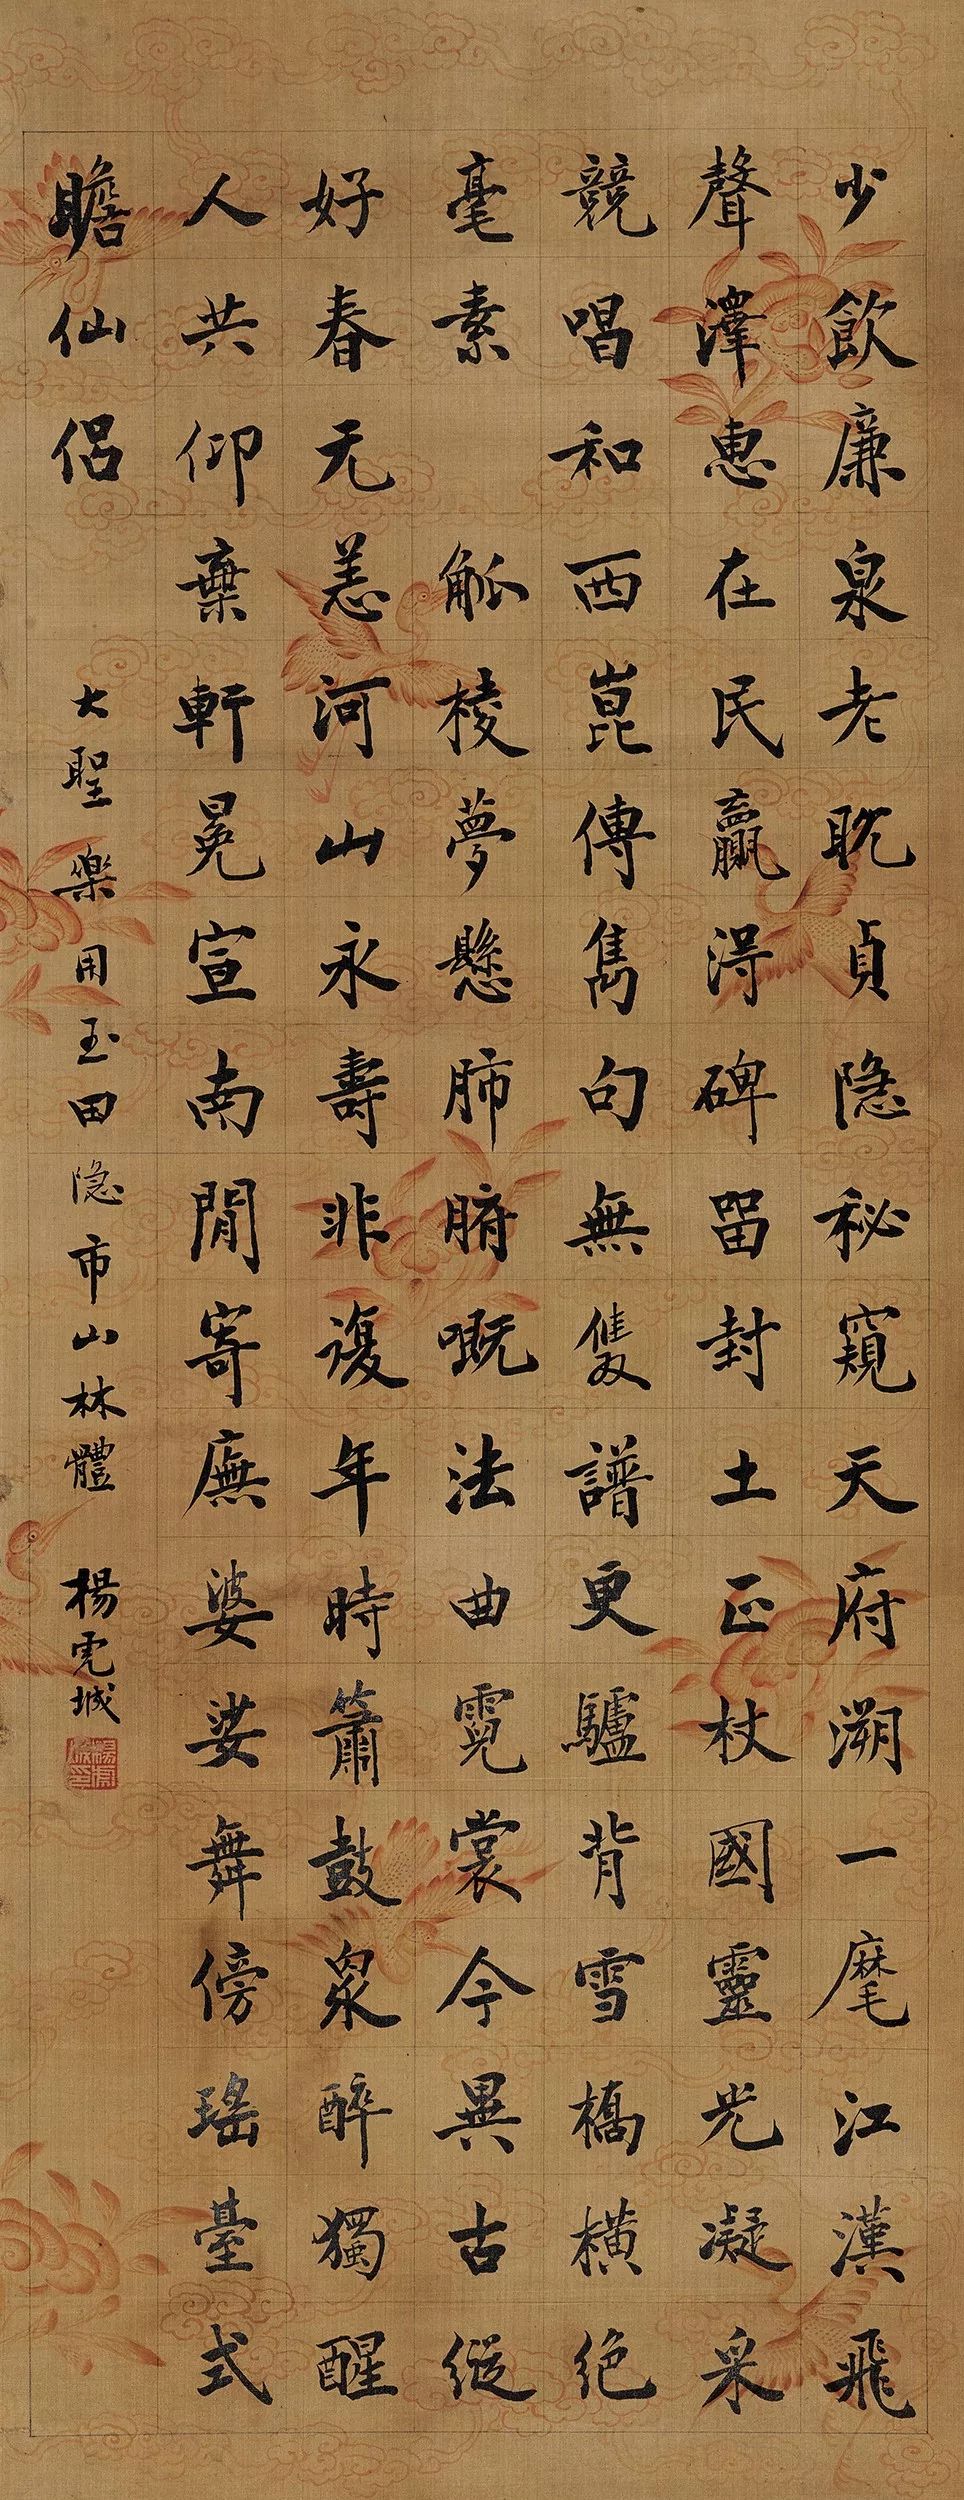 少飲廉泉老眈貞隱秘窺天府溯一麾江漢飛
聲澤惠在民贏得碑留封土正杖國靈光凝采
競唱和西崑傳雋句無雙譜更驢背雪橋橫絕
毫素 觚棱夢懸肺腑嘅法曲霓裳今異古縱
好春无恙河山永壽非復年時簫鼓衆醉獨醒
人共仰棄軒冕宣南閒寄廡婆娑舞傍瑤臺式
瞻仙侶
大聖樂用玉田隱市山林體 楊虎城